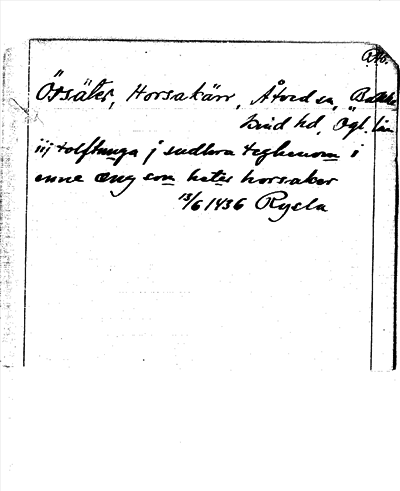 Örsäter, Horsakärr, Åtved sn,
Kind hd, Ögl. län
iij tolftunga j sudhra teghenom i
enne æng som heter horsaker
13/6 1436 Ryela